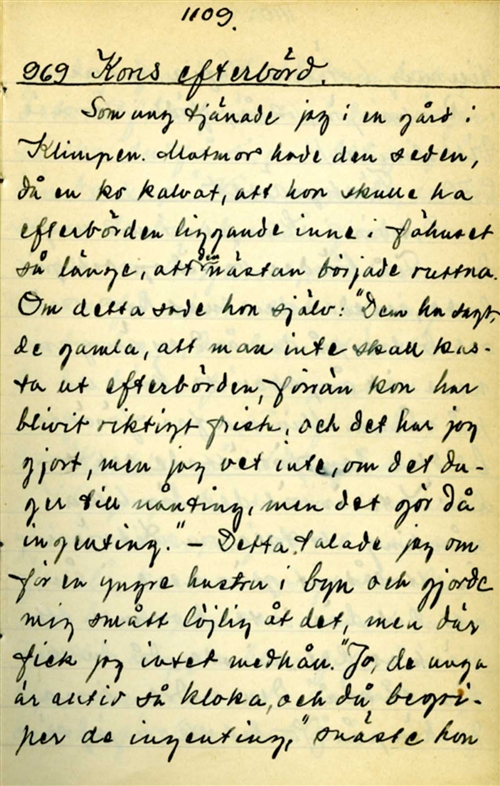 1109.
969 Kons efterbörd.
Som ung tjänade jag i en gård i
Klimpen. Matmor hade den seden,
då en ko kalvat, att hon skulle ha
efterbörden liggande inne i fähuset
så länge, att den nästan började ruttna.
Om detta sade hon själv: "Dem ha sagt,
de gamla, att man inte skall kas-
ta ut efterbörden, förrän kon har
blivit riktigt frisk, och det har jag
gjort, men jag vet inte, om det du-
ger till nånting, men det gör då
ingenting." – Detta talade jag om
för en yngre hustru i byn och gjorde
mig smått löjlig åt det, men där
fick jag intet medhån. "Jo, de unga
är alltid så kloka, och då begri-
per de ingenting," snäste hon